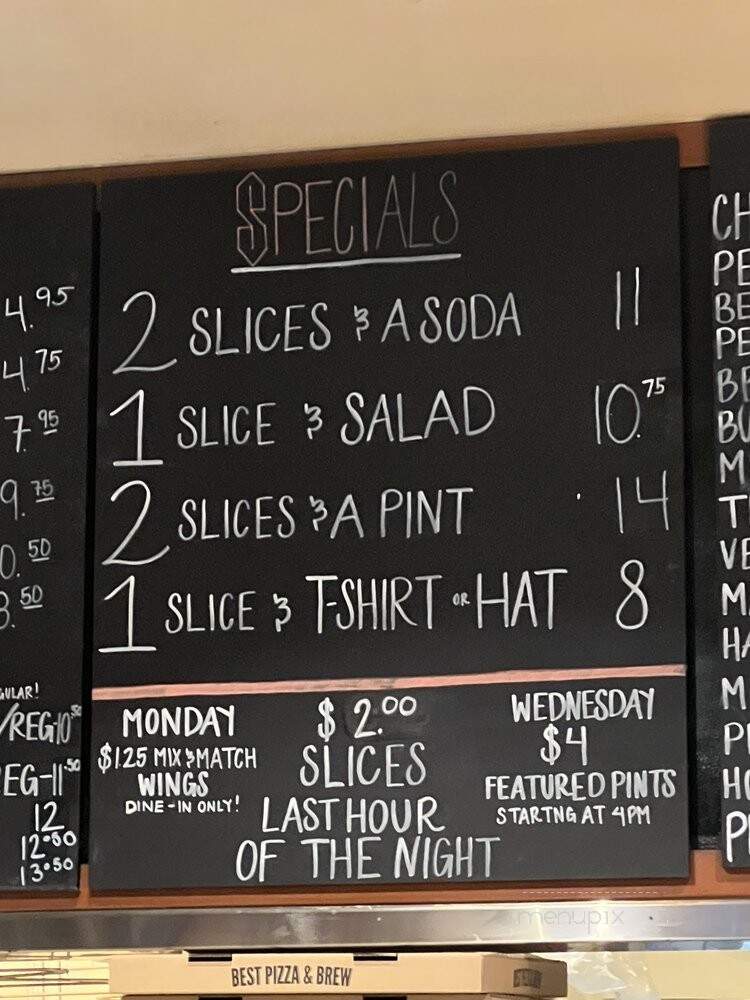 SPECIALS
2 SLICES & A SODA 11
1 SLICE & SALAD 10.75
2 SLICES & A PINT 14
1 SLICE & T-SHIRT OR HAT 8
MONDAY
$1.25 MIX & MATCH
WINGS
DINE-IN ONLY!
$2.00
SLICES
LAST HOUR
OF THE NIGHT
WEDNESDAY
$4
FEATURED PINTS
STARTNG AT 4PM
4.95
4.75
7.95
9.75
0.50
8.50
GULAR!
/REG 10.50
EG-11.50
12
12.50
13.50
CH
PE
BE
PE
BE
BU
M
T
VE
M
HA
M
P
HO
P
BEST PIZZA & BREW
menupix